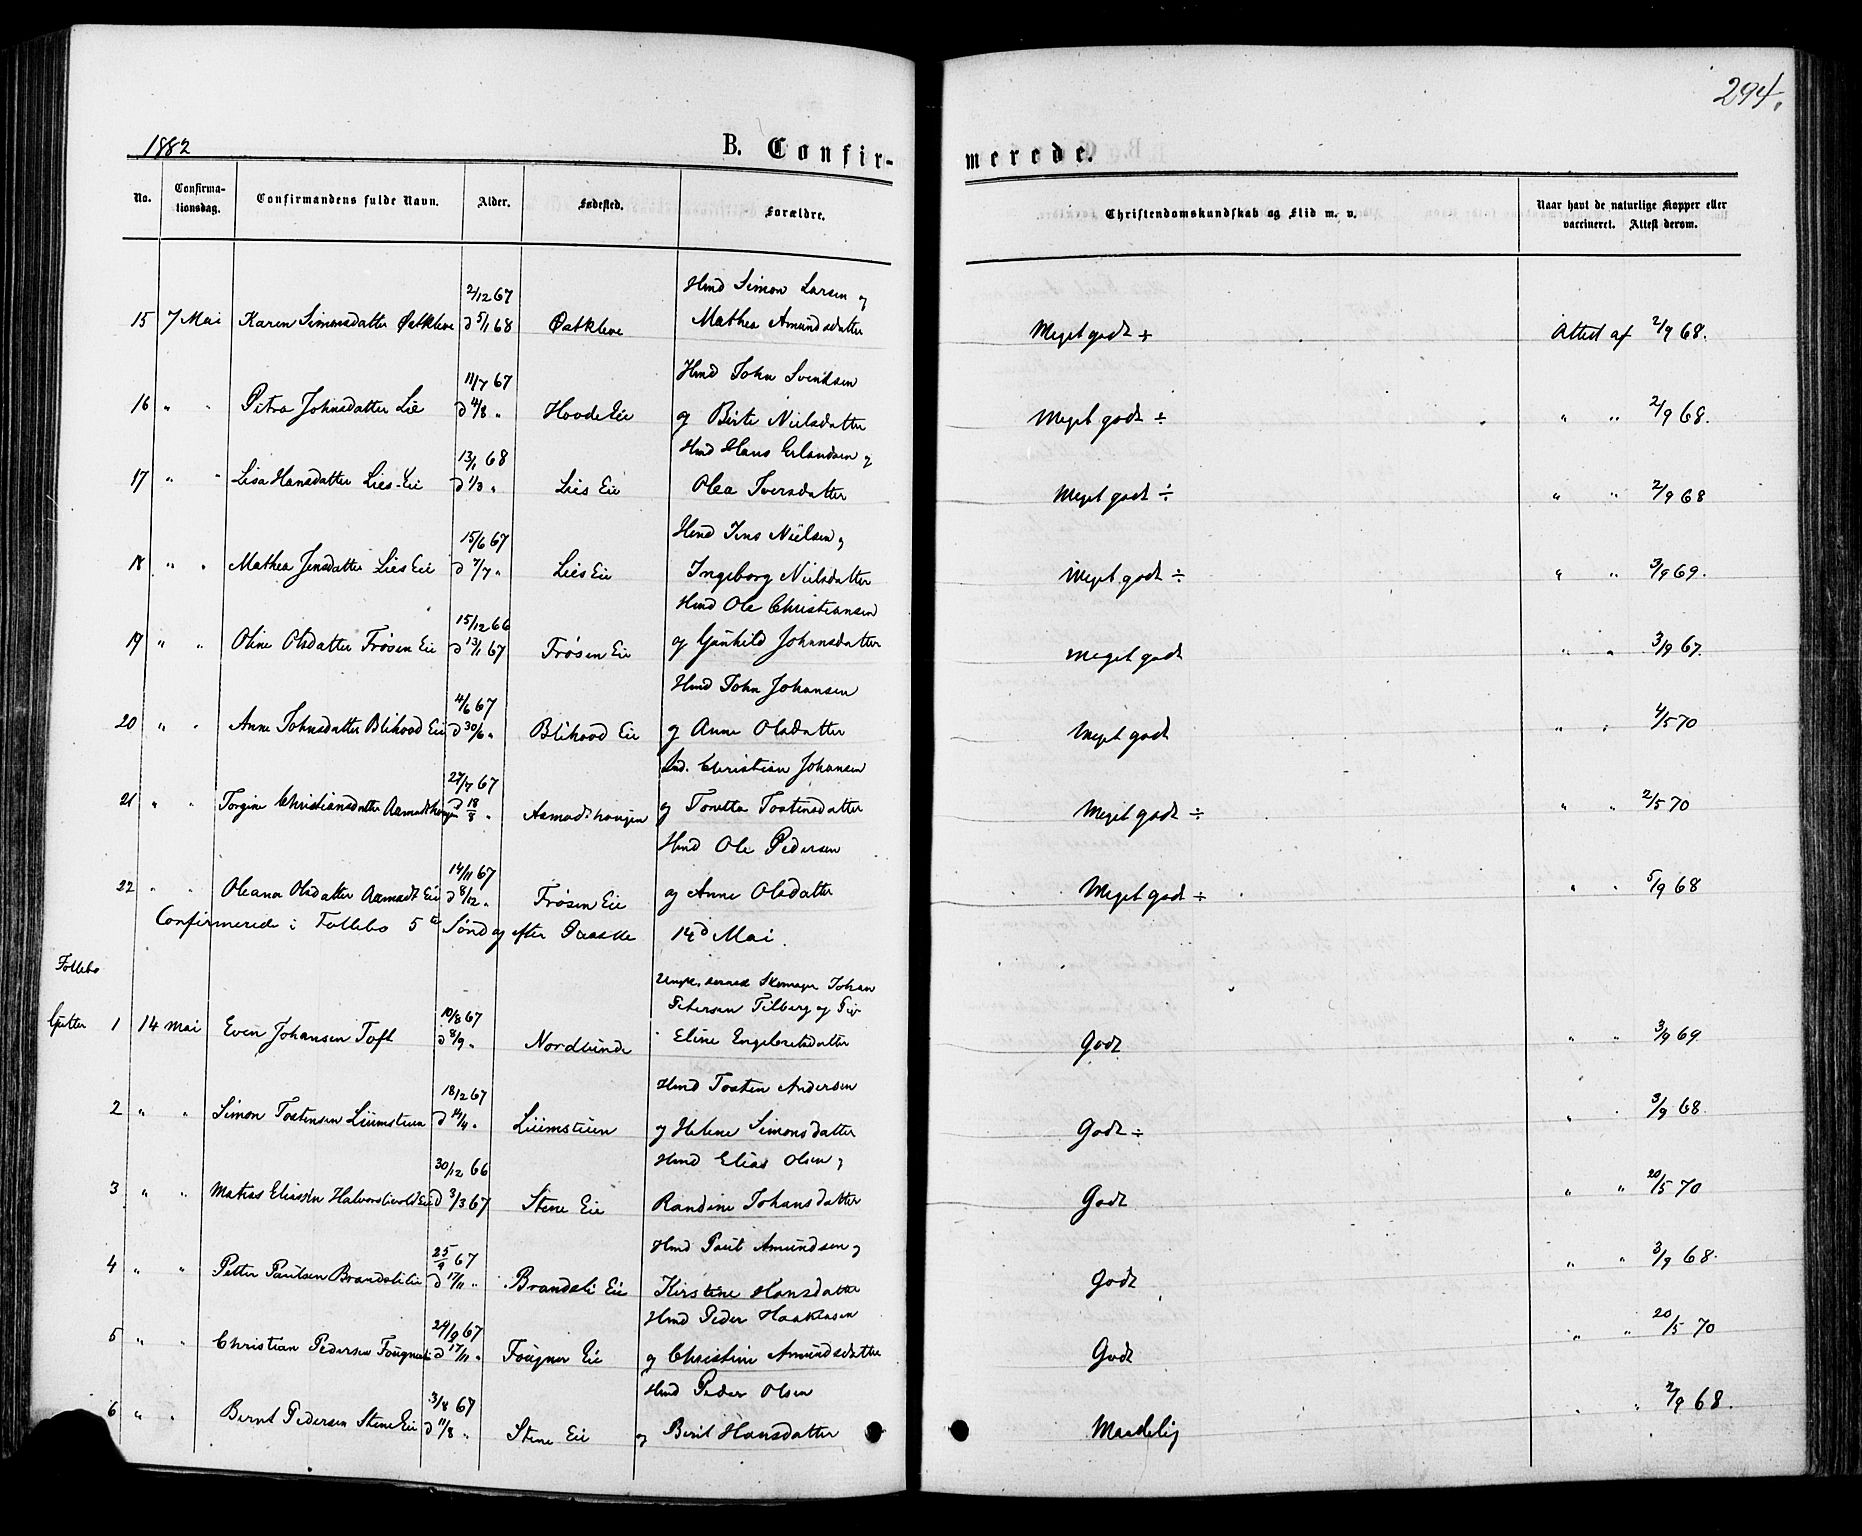 294.
1882
B. Confirmerede.
No. Confirmationsdag. Confirmandens fulde Navn. Alder. Fødested. Forældre. Christendomskundskab og Flid m. v. Naar havt de naturlige Kopper eller vaccineret. Attest derom.
2/12 67 Hmd Simon Larsen og
15 7 Mai Karen Simonsdatter Østkleve d 5/1 68 Østkleve Mathea Amundsdatter Meget godt ÷ Attest af 2/9 68.
11/7 67 Hmd John Svendsen
16 " " Petra Johnsdatter Lie d 4/8 " Hovde Eie og Birte Nielsdatter Meget godt ÷ " " 2/9 68.
13/1 68 Hmd Hans Erlandsen og
17 " " Lisa Hansdatter Lies-Eie d 1/3 " Lies Eie Olea Iversdatter Meget godt ÷ " " 2/9 68
15/6 67 Hmd Jens Nielsen og
18 " " Mathea Jensdatter Lies Eie d 7/7 " Lies Eie Ingeborg Nielsdatter Meget godt ÷ " " 3/9 69.
15/12 66 Hmd Ole Christiansen
19 " " Oline Olsdatter Frøsen Eie d 13/1 67 Frøsen Eie og Gunhild Johansdatter Meget godt " " 3/9 67.
4/6 67 Hmd John Johansen
20 " " Anne Johnsdatter Blihovd Eie d 30/6 " Blihovd Eie og Anne Olsdatter Meget godt " " 4/5 70
27/7 67 Ind. Christian Johansen
21 " " Torgine Christiansdatter Aamodthougen d 18/8 " Aamodthougen og Toretta Tostensdatter Meget godt ÷ " " 2/5 70
14/11 67 Hmd Ole Pedersen
22 " " Oleana Olsdatter Aamodt Eie d 8/12 " Frøsen Eie og Anne Olsdatter Meget godt ÷ " " 5/9 68
Confirmerede i Follebo 5te Søndag efter Paaske 14d Mai.
Follebo
10/8 67 Skomager Johan
Petersen Tilberg og Pige
Gutter 1 14 Mai Even Johansen Toft d 8/9 " Nordlunde Eline Engebretsdatter Godt " " 3/9 69.
18/2 67 Hmd Tosten Andersen
2 " " Simon Tostensen Liumstuen d 14/4 " Liumstuen og Helene Simonsdatter Godt ÷ " " 3/9 68.
30/12 66 Hmd Elias Olsen og
3 " " Mathias Eliassen d 3/3 67 Stene Eie Randine Johansdatter Godt " " 20/5 70
25/9 67 Hmd Paul Amundsen og
4 " " Petter Paulsen Brandslilie d 17/11 " Brandsli Eie Kirstine Hansdatter Godt " " 3/9 68.
24/9 67 Hmd Peder Haakensen
5 " " Christian Pedersen d 17/11 " Fougner Eie og Christine Amundsdatter Godt " " 20/5 70
3/8 67 Hmd Peder Olsen
6 " " Bernt Pedersen Stene Eie d 11/8 " Stene Eie og Berit Hansdatter Maadelig " " 2/9 68.